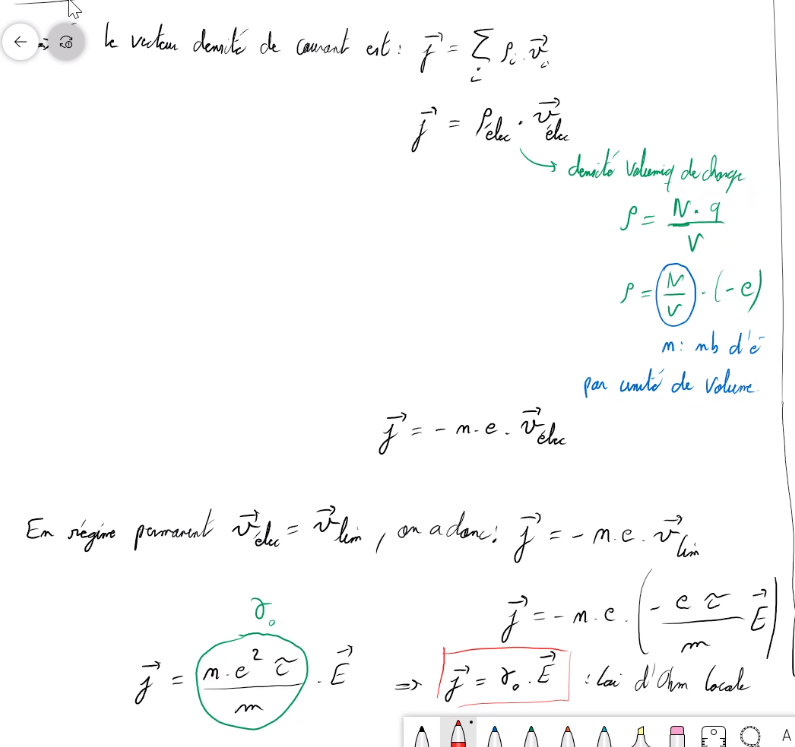 le vecteur densité de courant est : \vec{j} = \sum_i ρ_i . \vec{v}_i
\vec{j} = ρ_élec . \vec{v}_élec
→ densité Volumiq de charge
ρ = N . q / V
ρ = (N / V) . (-e)
n : nb d'e⁻
par unité de Volume.
\vec{j} = - n . e . \vec{v}_élec
En régime permanent \vec{v}_élec = \vec{v}_lim , on a donc : \vec{j} = - n . e . \vec{v}_lim
\vec{j} = - n . e . ( - e τ / m \vec{E} )
γ_0
\vec{j} = (n . e² τ / m) . \vec{E} => \vec{j} = γ_0 . \vec{E} : loi d'Ohm locale
A